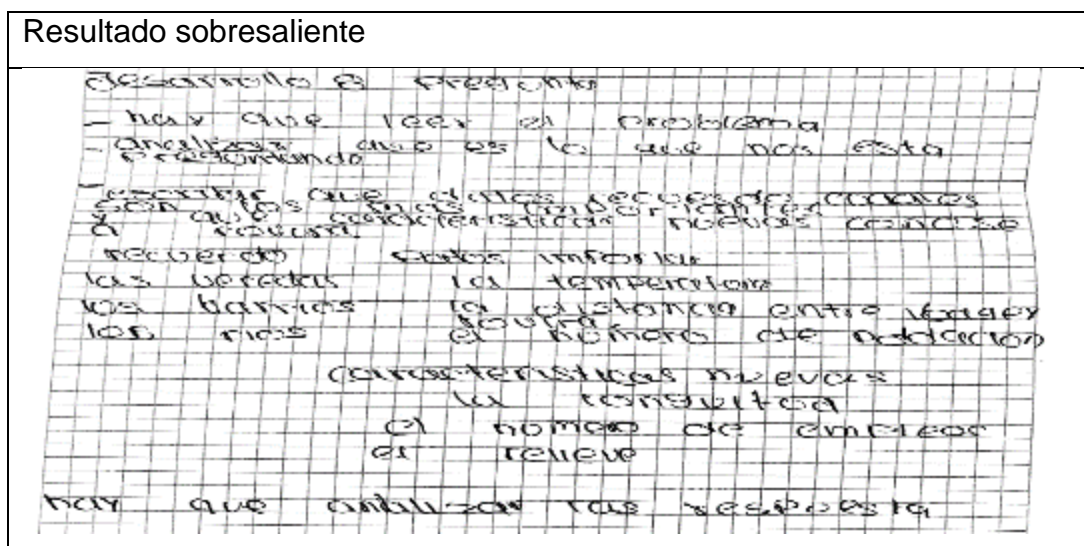 Resultado sobresaliente
desarrollo 8 pregunta
- hay que leer el problema
- analizar que es lo que nos esta
preguntando
- escribir que datos recuerda cuales
son los
y que caracteristicas nuevas conoce
d
recuerdo datos
las veredas la temperatura
los barrios la distancia entre
los rios el número de población
caracteristicas nuevas
la
el número de empleos
el relieve
hay que analizar las respuesta